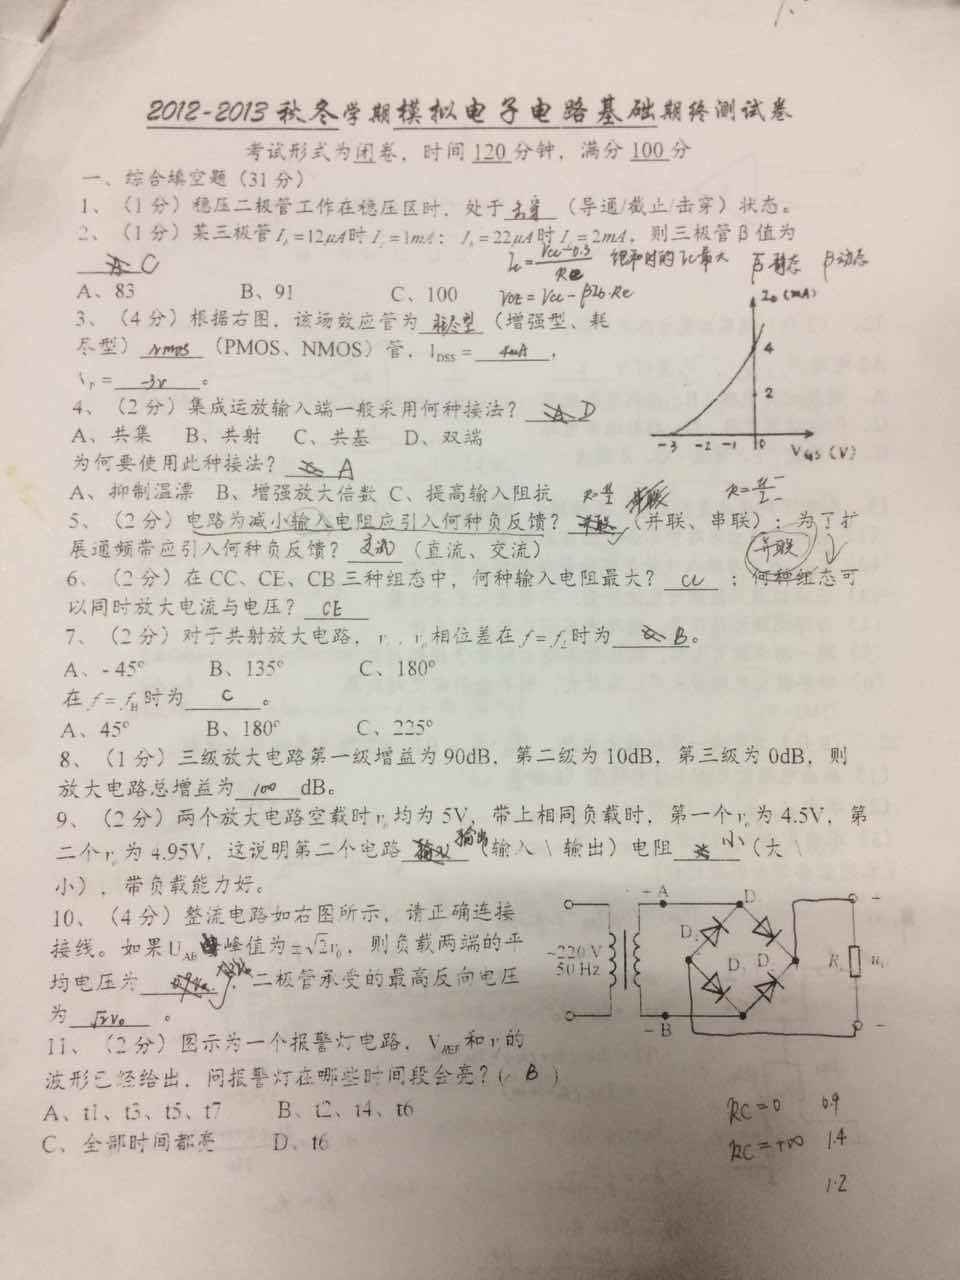 2012-2013秋冬学期模拟电子电路基础期终测试卷
考试形式为闭卷，时间120分钟，满分100分
一、综合填空题（31分）
1、（1分）稳压二极管工作在稳压区时，处于击穿（导通/截止/击穿）状态。
2、（1分）某三极管 I_b=12μA时 I_c=1mA；I_b=22μA时 I_c=2mA，则三极管β值为
C
Ic=(Vcc-0.3)/Rc 饱和时的Ic最大 β̄静态 β动态
VCE=Vcc-βIb·Rc
A、83 B、91 C、100
3、（4分）根据右图，该场效应管为 耗尽型（增强型、耗
尽型） NMOS（PMOS、NMOS）管，I_DSS= 4mA，
V_P= -3V。
I_D(mA)
4
2
-3 -2 -1 0 V_GS(V)
4、（2分）集成运放输入端一般采用何种接法？ D
A、共集 B、共射 C、共基 D、双端
为何要使用此种接法？ A
A、抑制温漂 B、增强放大倍数 C、提高输入阻抗
5、（2分）电路为减小输入电阻应引入何种负反馈？ 并联（并联、串联）；为了扩
并联
展通频带应引入何种负反馈？ 交流（直流、交流）
6、（2分）在CC、CE、CB三种组态中，何种输入电阻最大？ CC ；何种组态可
以同时放大电流与电压？ CE
7、（2分）对于共射放大电路，v_i、v_o相位差在 f=f_L时为 B。
A、-45° B、135° C、180°
在 f=f_H时为 C。
A、45° B、180° C、225°
8、（1分）三级放大电路第一级增益为90dB，第二级为10dB，第三级为0dB，则
放大电路总增益为 100 dB。
9、（2分）两个放大电路空载时v_o均为5V，带上相同负载时，第一个v_o为4.5V，第
二个v_o为4.95V，这说明第二个电路 输出（输入 \ 输出）电阻 小（大 \
小），带负载能力好。
10、（4分）整流电路如右图所示，请正确连接
接线。如果U_AB峰值为=√2v_0，则负载两端的平
均电压为 ，二极管承受的最高反向电压
为 √2V₀。
+A
~220V
50Hz
-B
D
D
D
D
R
u
+
-
11、（2分）图示为一个报警灯电路，V_REF和v_i的
波形已经给出，问报警灯在哪些时间段会亮？( B )
A、t1、t3、t5、t7 B、t2、t4、t6
C、全部时间都亮 D、t6
RC=0 0.9
RC=+∞ 1.4
1.2